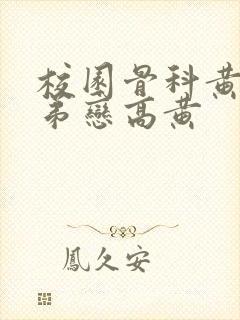 校園骨科黃
弟戀高黃
鳳久安